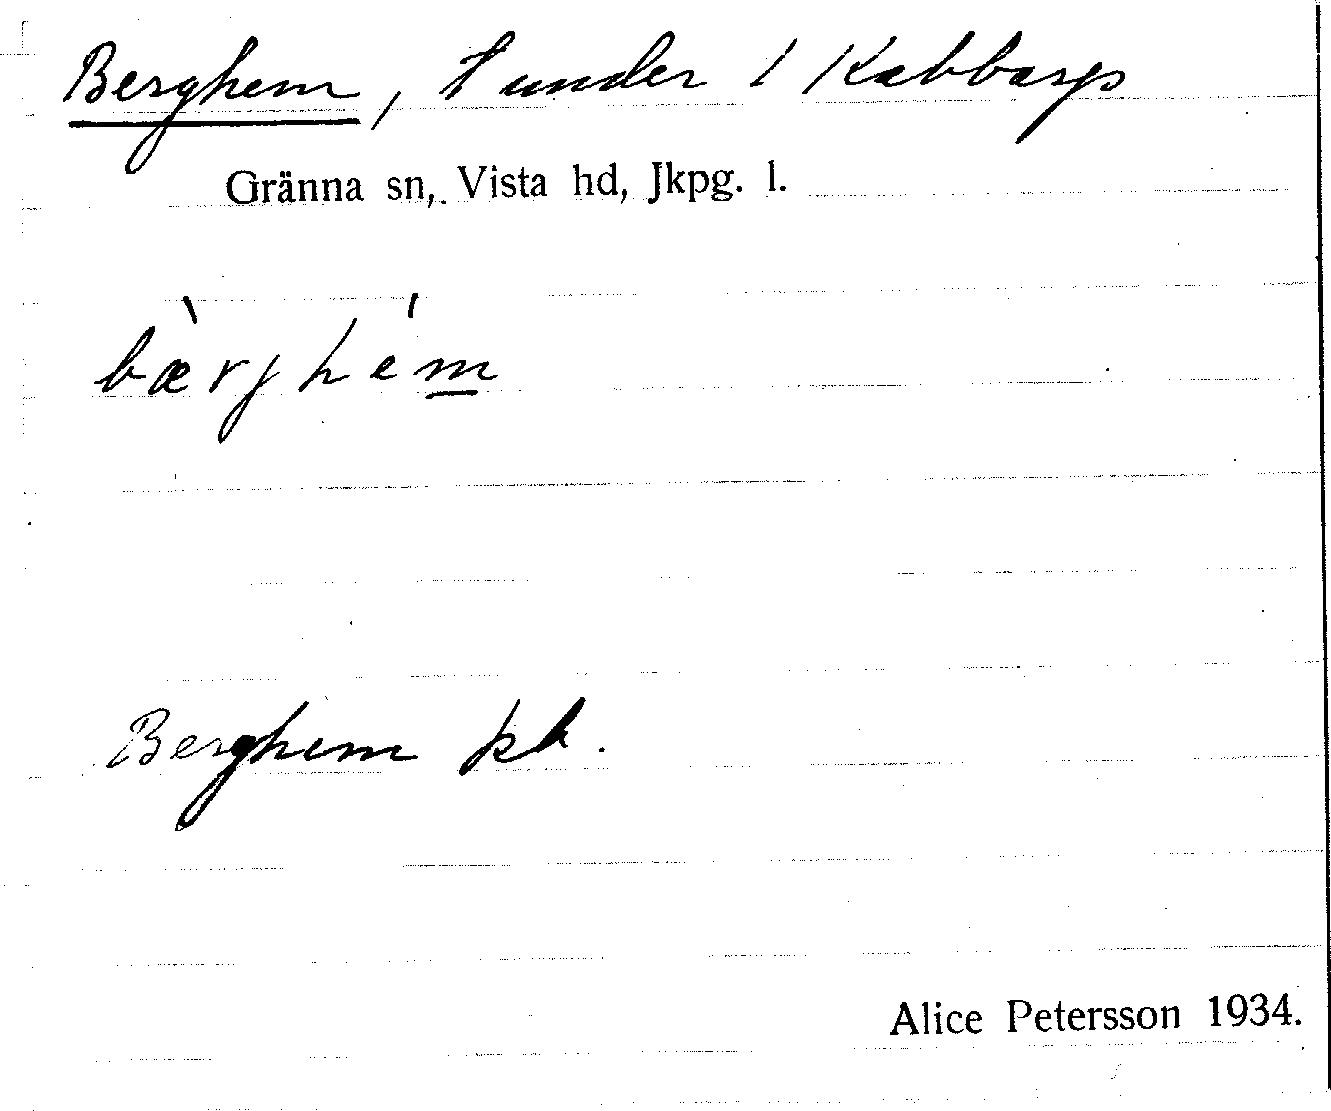 Berghem, t under 1 Kabbarp
Gränna sn, Vista hd, Jkpg. l.
bæ̀rjhém
Berghem kb.
Alice Petersson 1934.